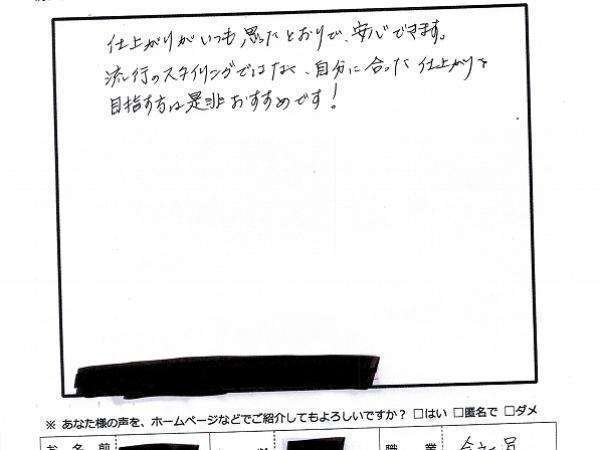 仕上がりがいつも思ったとおりで、安心できます。
流行のスタイリングではなく、自分に合った仕上がりを
目指す方は是非おすすめです!
※ あなた様の声を、ホームページなどでご紹介してもよろしいですか? □はい □匿名で □ダメ
お名前 職業 会社員